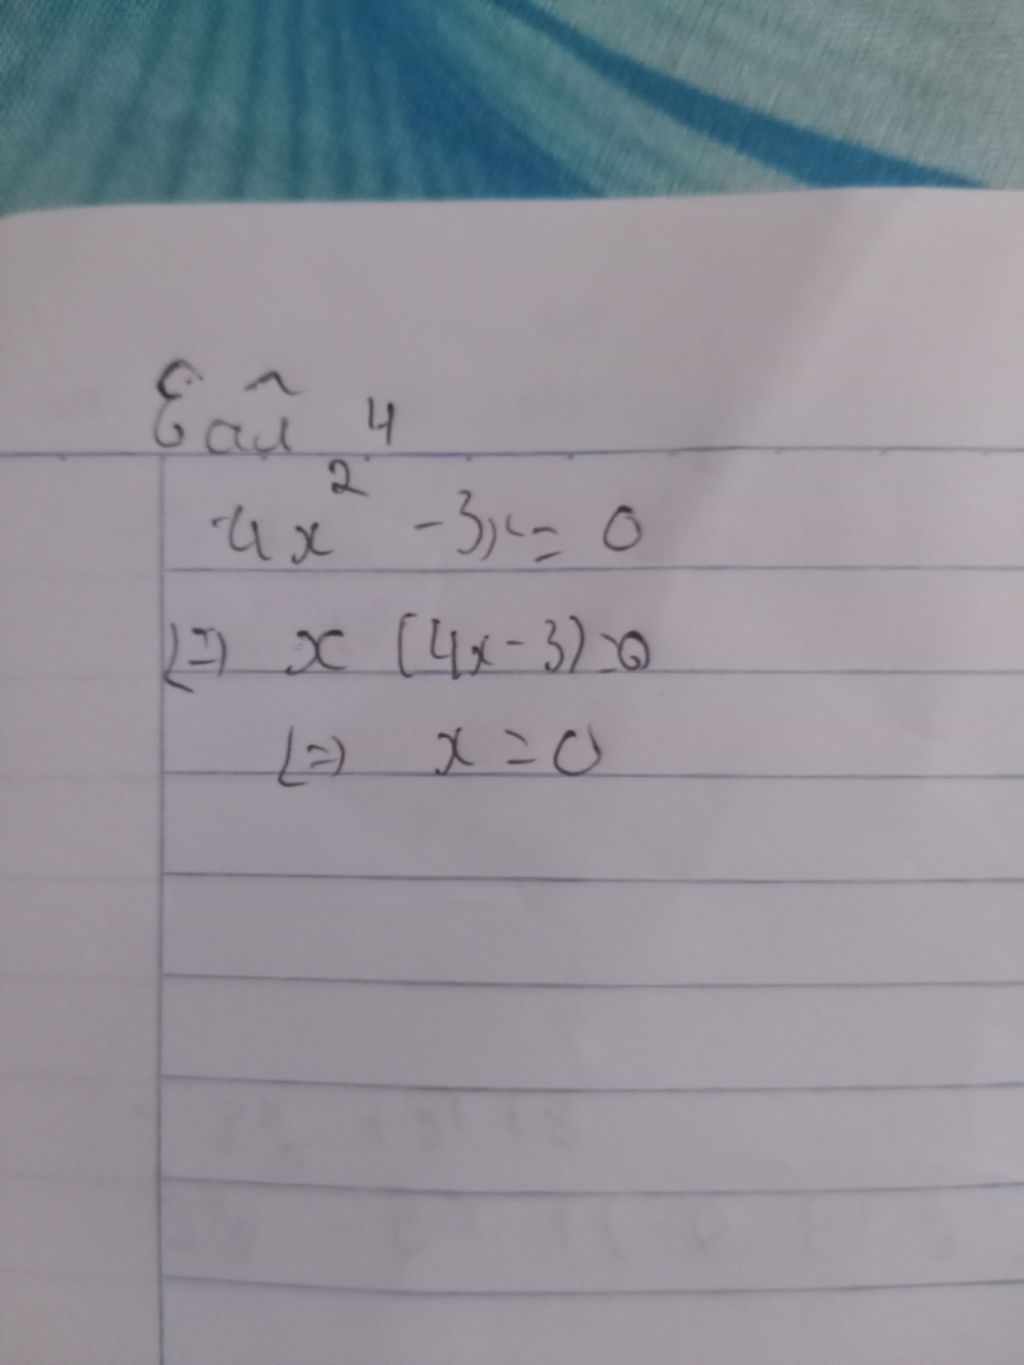 Câu 4
4x² -3x = 0
(=) x (4x-3)=0
(=) x = 0